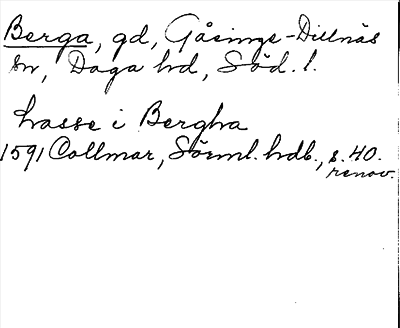 Berga, gd, Gåsinge-Dillnäs
sn, Daga hd, Söd. l.
Lasse i Bergha
1591 Collmar, Sörml. hdb., s. 40.
renov.